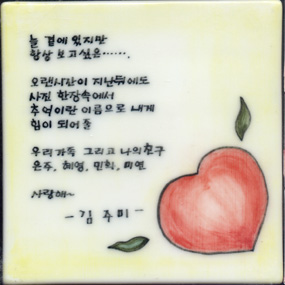 늘 곁에 있지만
항상 보고싶은······.
오랜시간이 지난뒤에도
사진 한장속에서
추억이란 이름으로 내게
힘이 되어줄
우리가족 그리고 나의친구
은주, 혜영, 민희, 미연
사랑해~
-김 주 미-